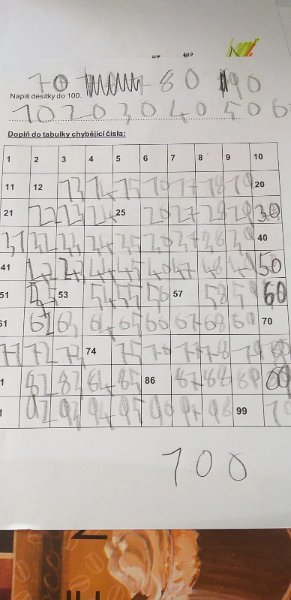 70 80 90
Napiš desítky do 100.
10 20 30 40 50 60
Doplň do tabulky chybějící čísla:
1 2 3 4 5 6 7 8 9 10
11 12 13 14 15 16 17 18 19 20
21 22 23 24 25 26 27 28 29 30
31 32 33 34 35 36 37 38 39 40
41 42 43 44 45 46 47 48 49 50
51 52 53 54 55 56 57 58 59 60
61 62 63 64 65 66 67 68 69 70
71 72 73 74 75 76 77 78 79 80
1 82 83 84 85 86 87 88 89 90
92 93 94 95 96 97 98 99
100